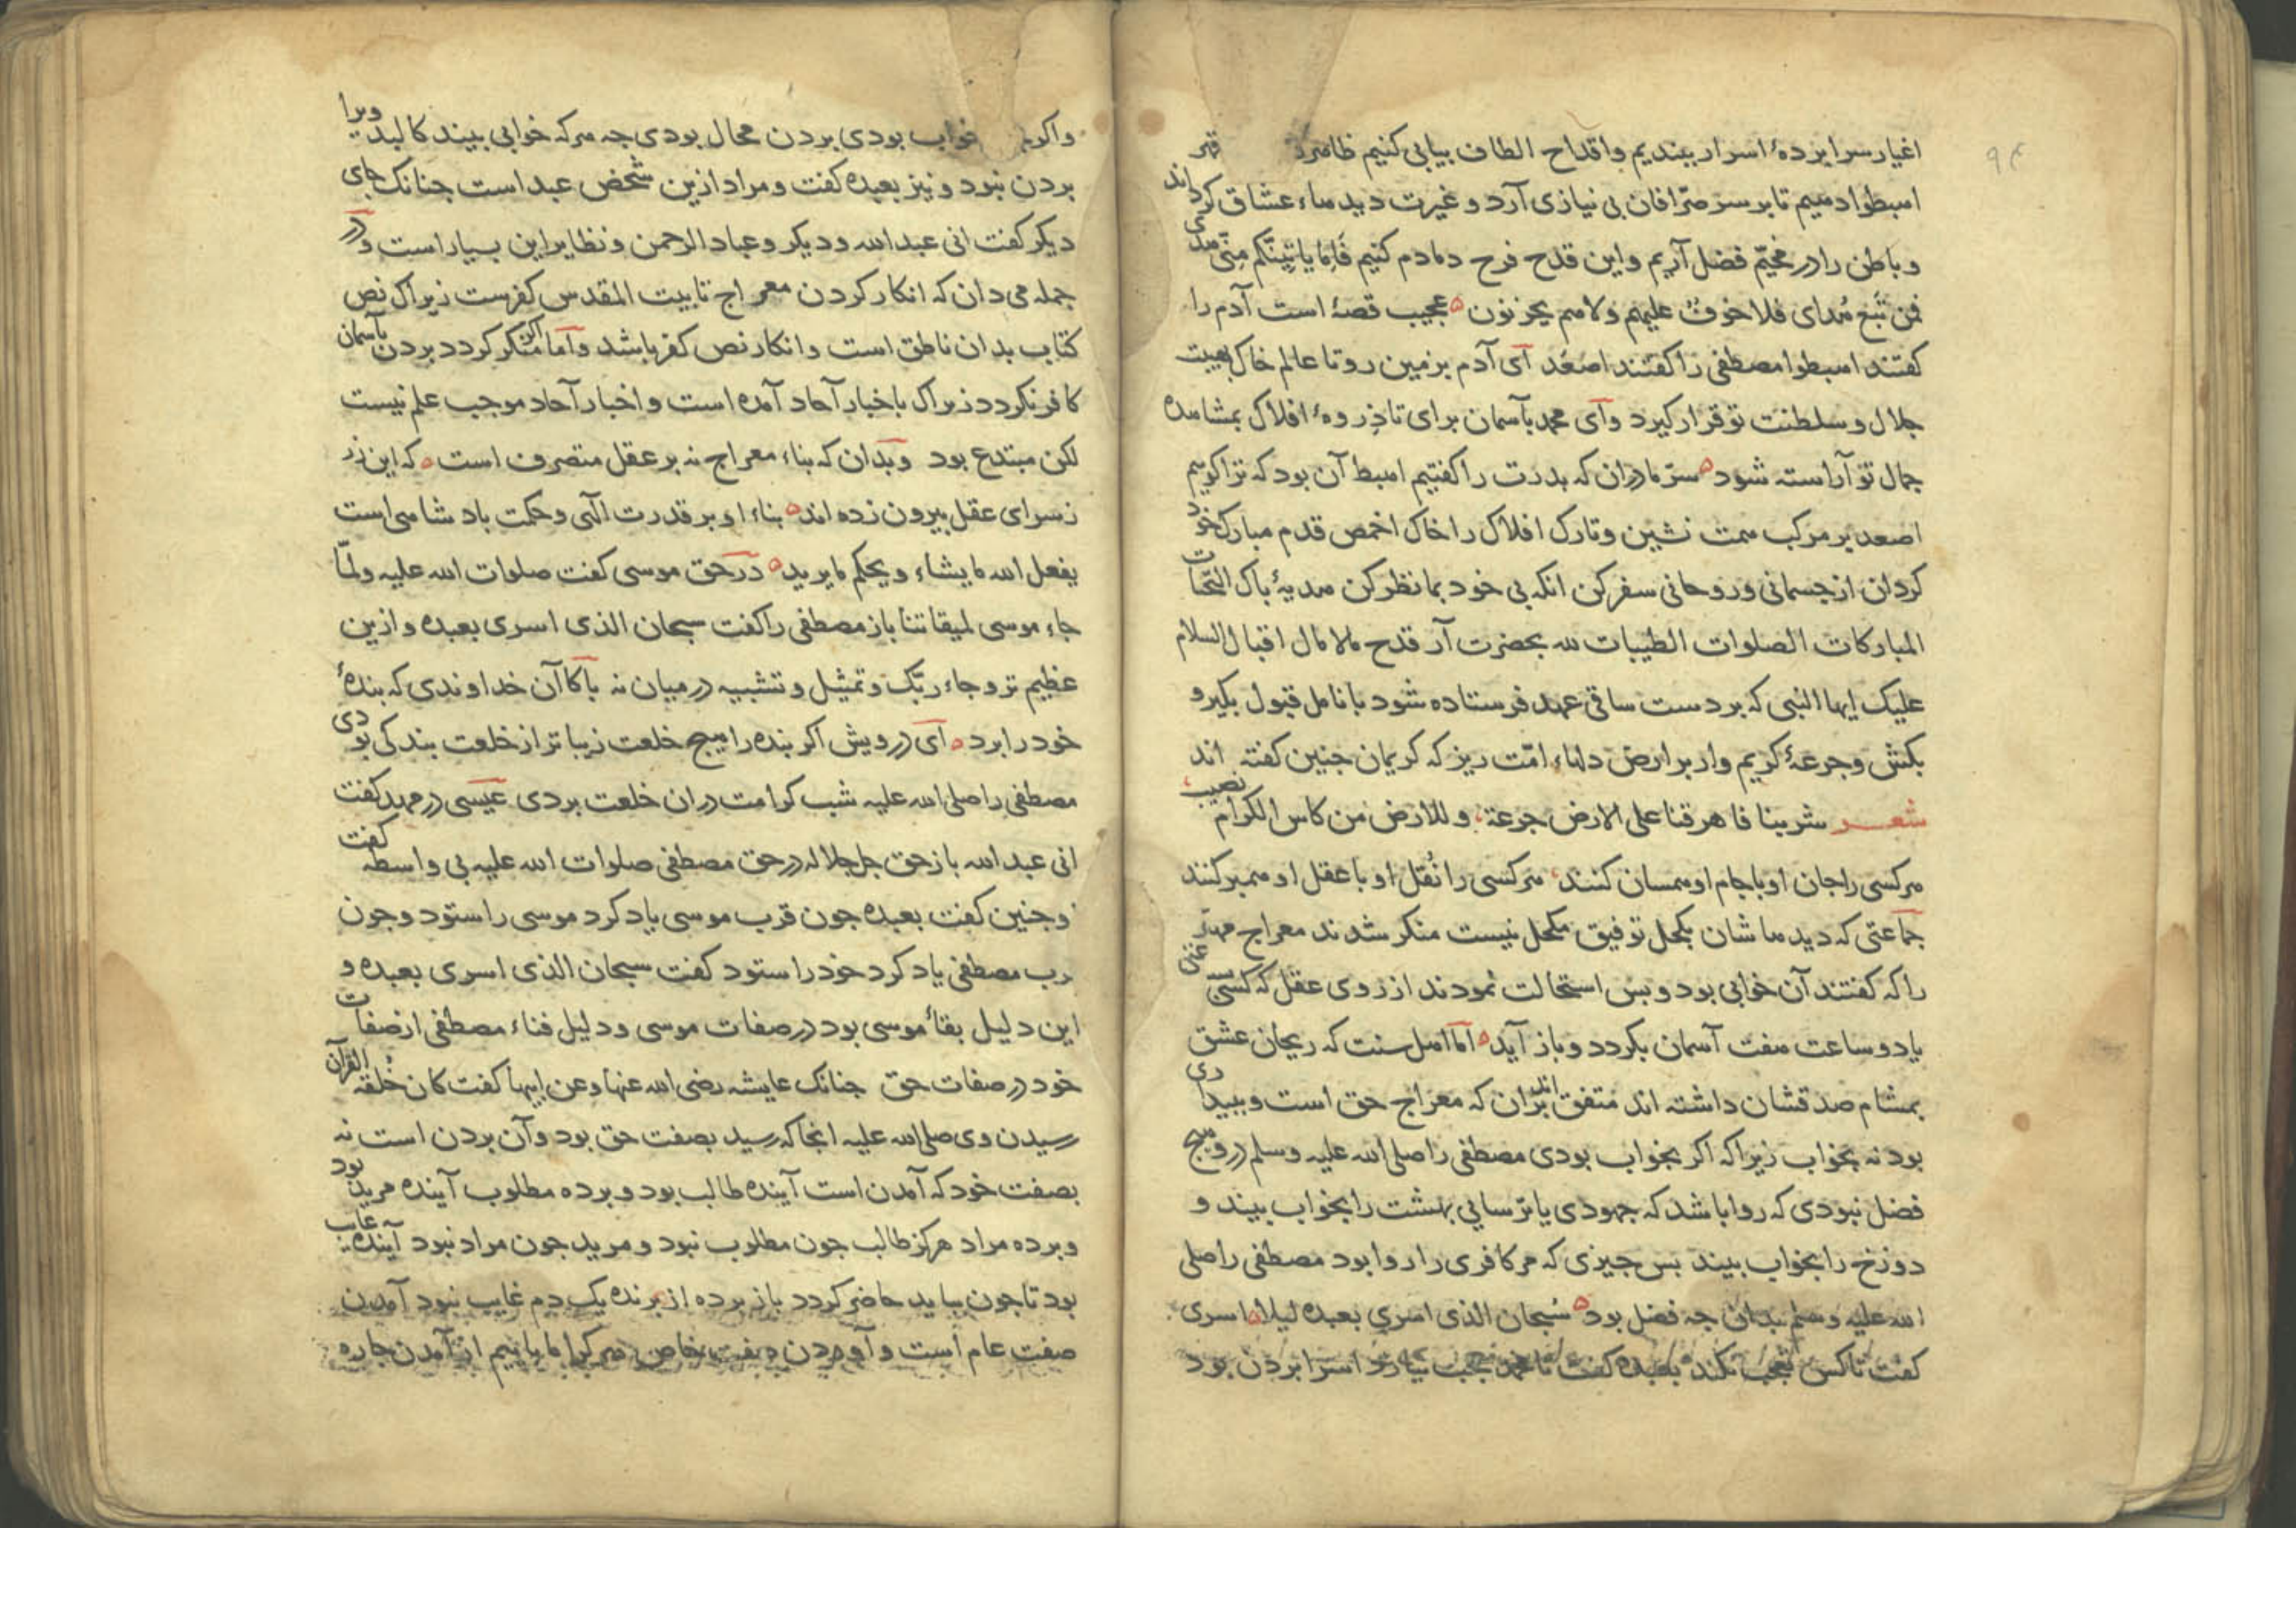 ۹۴
اغیار سرا برده‌ٔ اسرار ببندیم و اقداح الطاف بیابی کنیم ظاهر در قهر
اهبطوا دهیم تا بر سر صرافان بی نیازی آرد و غیرت دیدهاء عشاق کرداند
و باطن را در مخیّم فضل آریم و این قدح فرح دمادم کنیم فَاِمّا یاتینّکم منّی هدی
فمن تبع هدای فلا خوف علیهم ولا هم یحزنون عجیب قصهٔ است آدم را
کفتند اهبطوا مصطفی را کفتند اصعد ای آدم بزمین رو تا عالم خاک بهیبت
جلال و سلطنت تو قرار کیرد و ای محمد بآسمان برای تا ذروهٔ افلاک بمشاهده
جمال تو آراسته شود سرّ ما دران که بدرت را کفتیم اهبط آن بود که ترا کوییم
اصعد بر مرکب همت نشین و تارک افلاک را خاک اخمص قدم مبارک خود
کردان از جسمانی و روحانی سفر کن انکه بی خود بما نظر کن هدیهٔ باک التحیات
المبارکات الصلوات الطیبات لله بحضرت آر قدح مالامال اقبال السلام
علیک ایها النبی که بر دست ساقی عهد فرستاده شود بانامل قبول بکیر و
بکش و جرعهٔ کریم وار بر ارض دلهاء امّت ریز که کریمان جنین کفته اند
شعر شربنا فاهرقنا علی الارض جرعة وللارض من کاس الکرام نصیب
هر کسی را جان او با جام او همسان کنند هر کسی را نُقل او با عقل او همبر کنند
جماعتی که دیدهاشان بکحل توفیق مکحل نیست منکر شدند معراج مهتر
را که کفتند آن خوابی بود و بس استحالت نمودند از روی عقل که کسی
یا دو ساعت هفت آسمان بکردد و باز آید اما اهل سنت که ریحان عشق
بمشام صدقشان داشته اند متفق اند بران که معراج حق است و ببیداری
بود نه بخواب زیرا که اکر بخواب بودی مصطفی را صلی الله علیه وسلم درو هیج
فضل نبودی که روا باشد که جهودی یا ترسایی بهشت را بخواب بیند و
دوزخ را بخواب بیند بس جیزی که هر کافری را روا بود مصطفی را صلی
الله علیه وسلم بدان جه فضل بود سُبحان الذی اسری بعبده لیلا اسری
کفت تا کس تعجب نکند بعبده کفت تا محمد عجب نیارد اسرا بردن بود
و اکر بخواب بودی بردن محال بودی جه هر که خوابی بیند کالبد ویرا
بردن نبود و نیز بعبده کفت و مراد ازین شخص عبد است جنانک جای
دیکر کفت انی عبد الله و دیکر و عباد الرحمن و نظایر این بسیار است و در
جمله می دان که انکار کردن معراج تا بیت المقدس کفرست زیراک نص
کتاب بدان ناطق است و انکار نص کفر باشد و اما اکر منکر کردد بردن بآسمان
کافر نکردد زیراک باخبار آحاد آمده است و اخبار آحاد موجب علم نیست
لکن مبتدع بود و بدان که بناء معراج نه بر عقل متصرف است که این در
ز سرای عقل بیرون زده اند بناء او بر قدرت الهی و حکمت بادشاهی است
یفعل الله ما یشاء و یحکم ما یرید در حق موسی کفت صلوات الله علیه ولمّا
جاء موسی لمیقاتنا باز مصطفی را کفت سبحان الذی اسری بعبده و ازین
عظیم تر و جاء ربّک و تمثیل و تشبیه در میان نه باکا آن خداوندی که بندهٔ
خود را برد ای درویش اکر بنده را هیج خلعت زیباتر از خلعت بندکی بودی
مصطفی را صلی الله علیه شب کرامت دران خلعت بردی عیسی در مهد کفت
انی عبد الله باز حق جل جلاله در حق مصطفی صلوات الله علیه بی واسطه کفت
و جنین کفت بعبده جون قرب موسی یاد کرد موسی را ستود و جون
رب مصطفی یاد کرد خود را ستود کفت سبحان الذی اسری بعبده و
این دلیل بقاء موسی بود در صفات موسی و دلیل فناء مصطفی از صفات
خود در صفات حق جنانک عایشه رضی الله عنها و عن ابیها کفت کان خُلقه القرآن
رسیدن وی صلی الله علیه انجا که رسید بصفت حق بود و آن بردن است نه
بصفت خود که آمدن است آینده طالب بود و برده مطلوب آینده مرید بود
و برده مراد هرکز طالب جون مطلوب نبود و مرید جون مراد نبود آینده غایب
بود تا جون بیاید حاضر کردد باز برده از برنده یک دم غایب نبود آمدن
صفت عام است و آوردن صفت خاص هر کرا ما یابیم از آمدن جاره